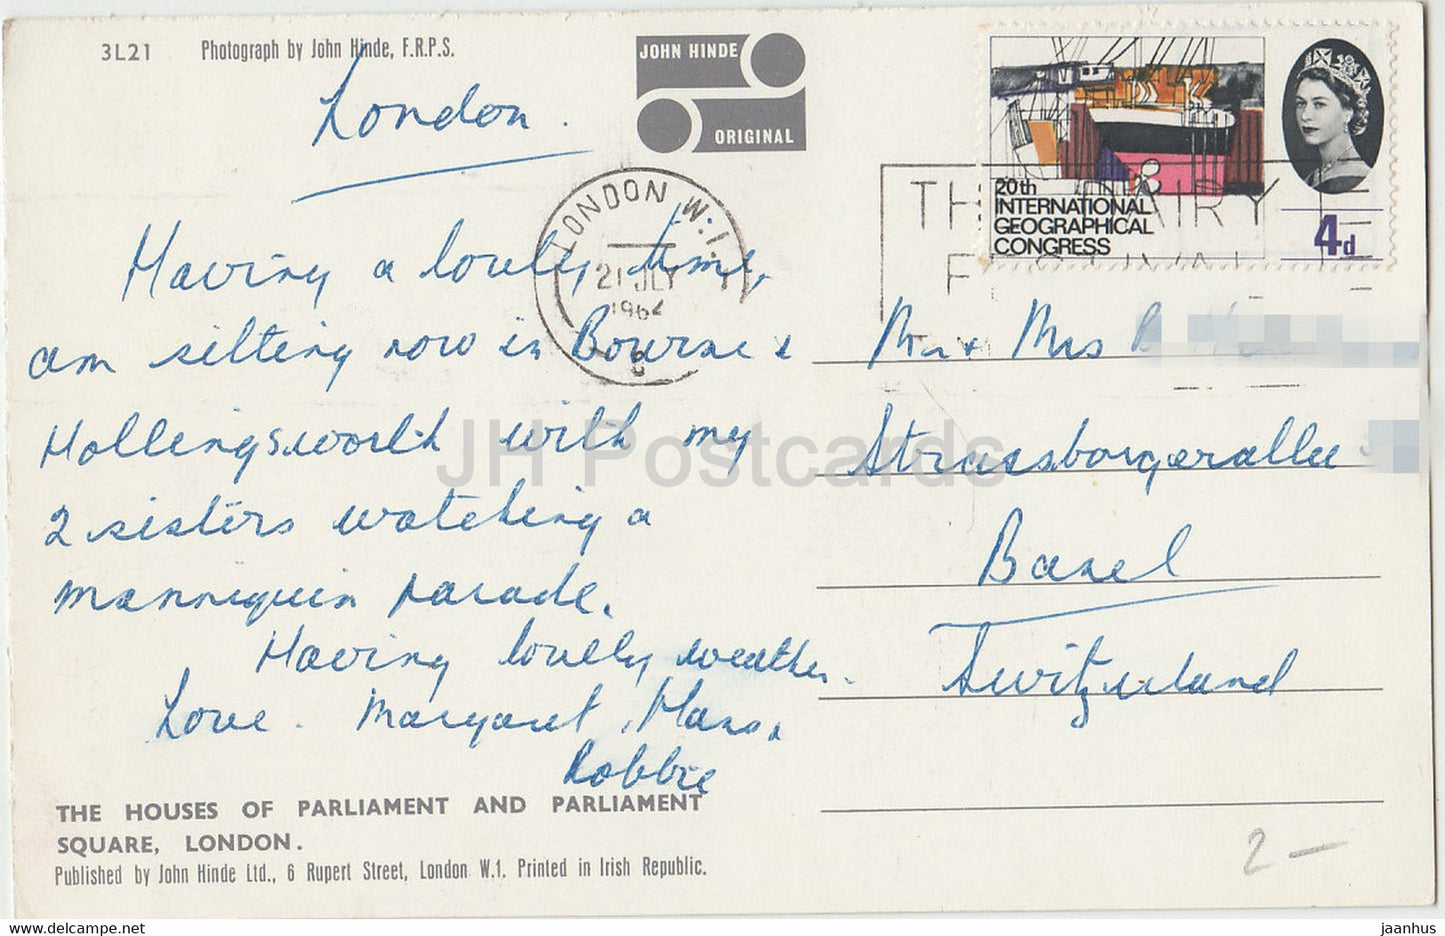 3L21 Photograph by John Hinde, F.R.P.S.
JOHN HINDE
ORIGINAL
London.
20th
INTERNATIONAL
GEOGRAPHICAL
CONGRESS
4d
LONDON W.1.
21 JLY
1964
Having a lovely time,
am sitting now in Bourne &
Hollingsworth with my
2 sisters watching a
mannequin parade.
Having lovely weather.
Love. Margaret, Hans,
Robbie
Mr + Mrs B
Strassborgerallee
Basel
Switzerland
THE HOUSES OF PARLIAMENT AND PARLIAMENT
SQUARE, LONDON.
Published by John Hinde Ltd., 6 Rupert Street, London W.1. Printed in Irish Republic.
2 -
JH Postcards
www.delcampe.net
jaanhus